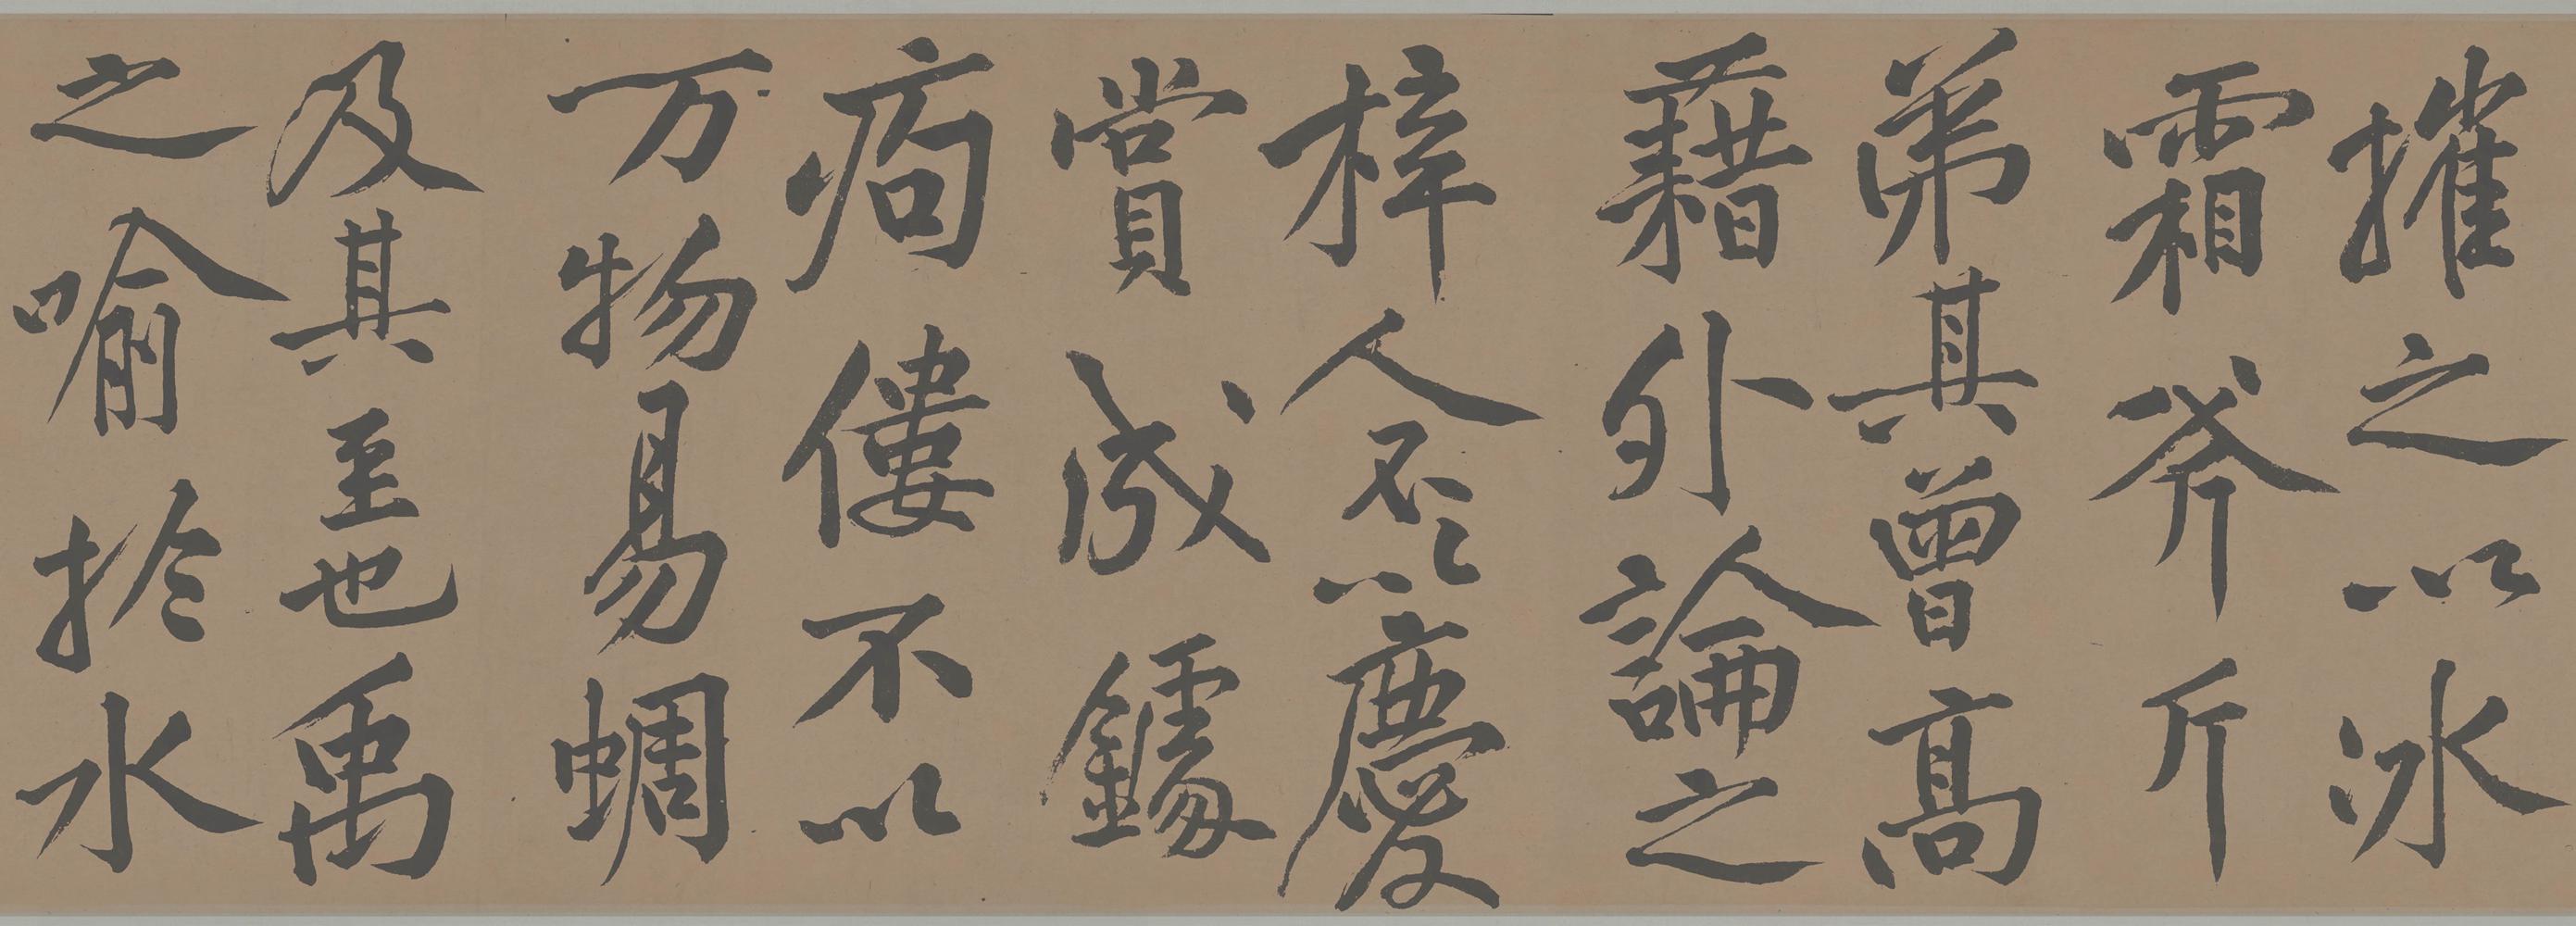 摧之以冰
霜斧斤
弟其曾高
藉外論之
梓人不以慶
賞成鐻
痀僂不以
万物易蜩
及其至也禹
之喻於水